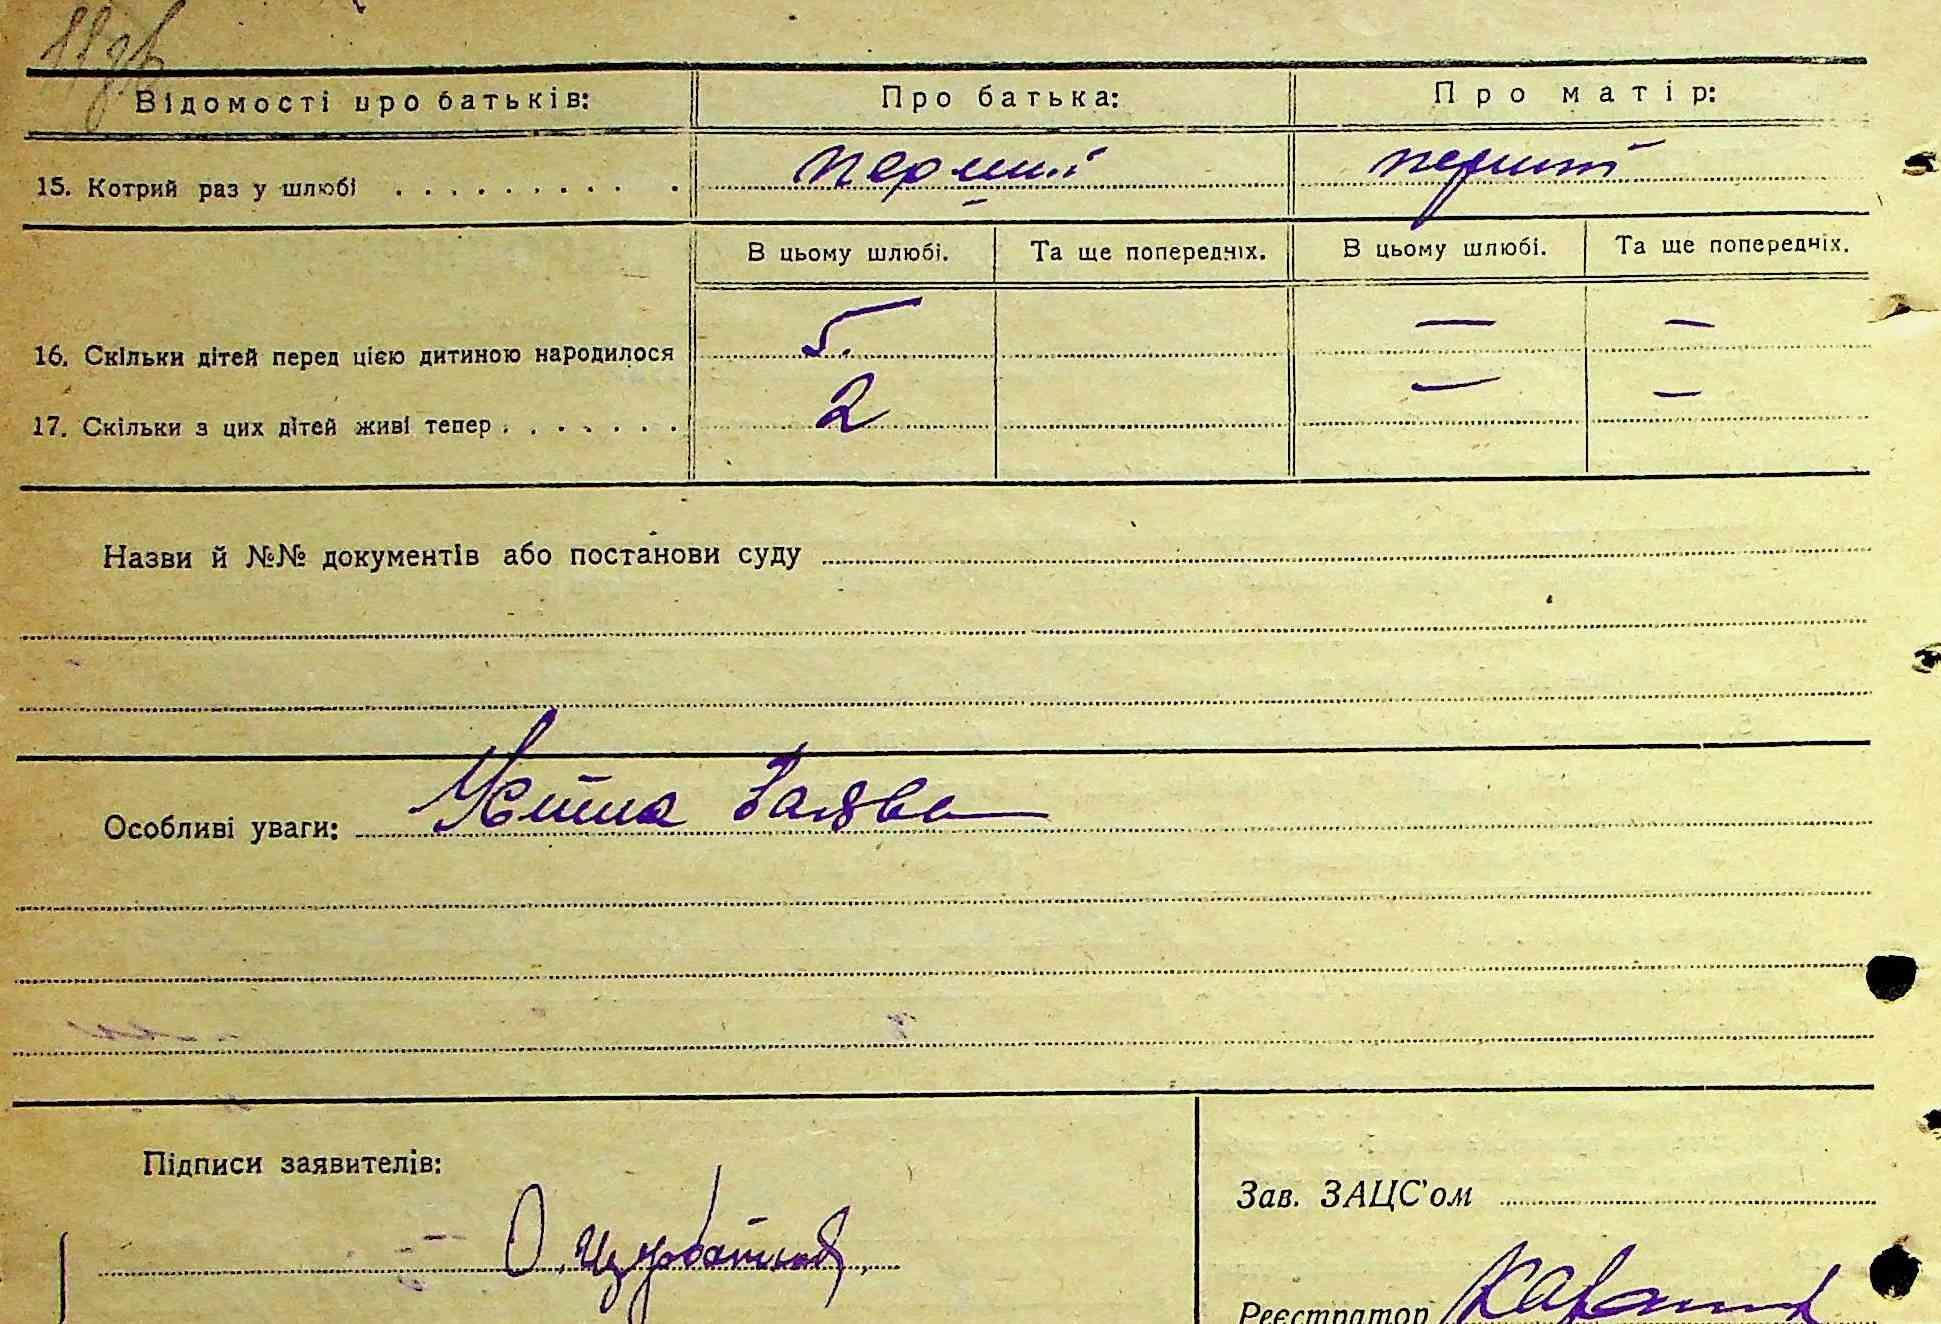 Відомості про батьків: Про батька: Про матір:
15. Котрий раз у шлюбі . . . . . . . . . . перший перший
В цьому шлюбі. Та ще попередніх. В цьому шлюбі. Та ще попередніх.
16. Скільки дітей перед цією дитиною народилося 5. — —
17. Скільки з цих дітей живі тепер . . . . . . . 2 — —
Назви й №№ документів або постанови суду
Особливі уваги: Устна Заява
Підписи заявителів:
Зав. ЗАЦС'ом
О.
Реєстратор